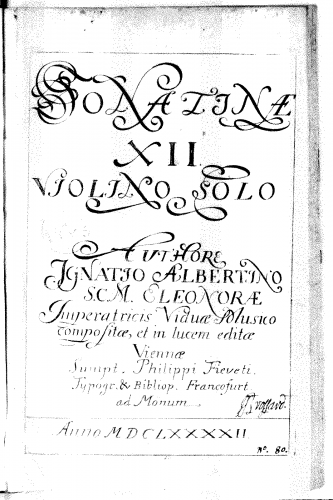 SONATINÆ
XII.
VIOLINO SOLO
AUTHORE
IGNATIO ALBERTINO
S.C.M. ELEONORÆ
Imperatricis Viduæ Musico
compositæ, et in lucem editæ
Viennæ
Sumpt. Philippi Fieveti.
Typogr. & Bibliop. Francofurt
ad Mœnum.
Anno MDCLXXXXII
No. 80.